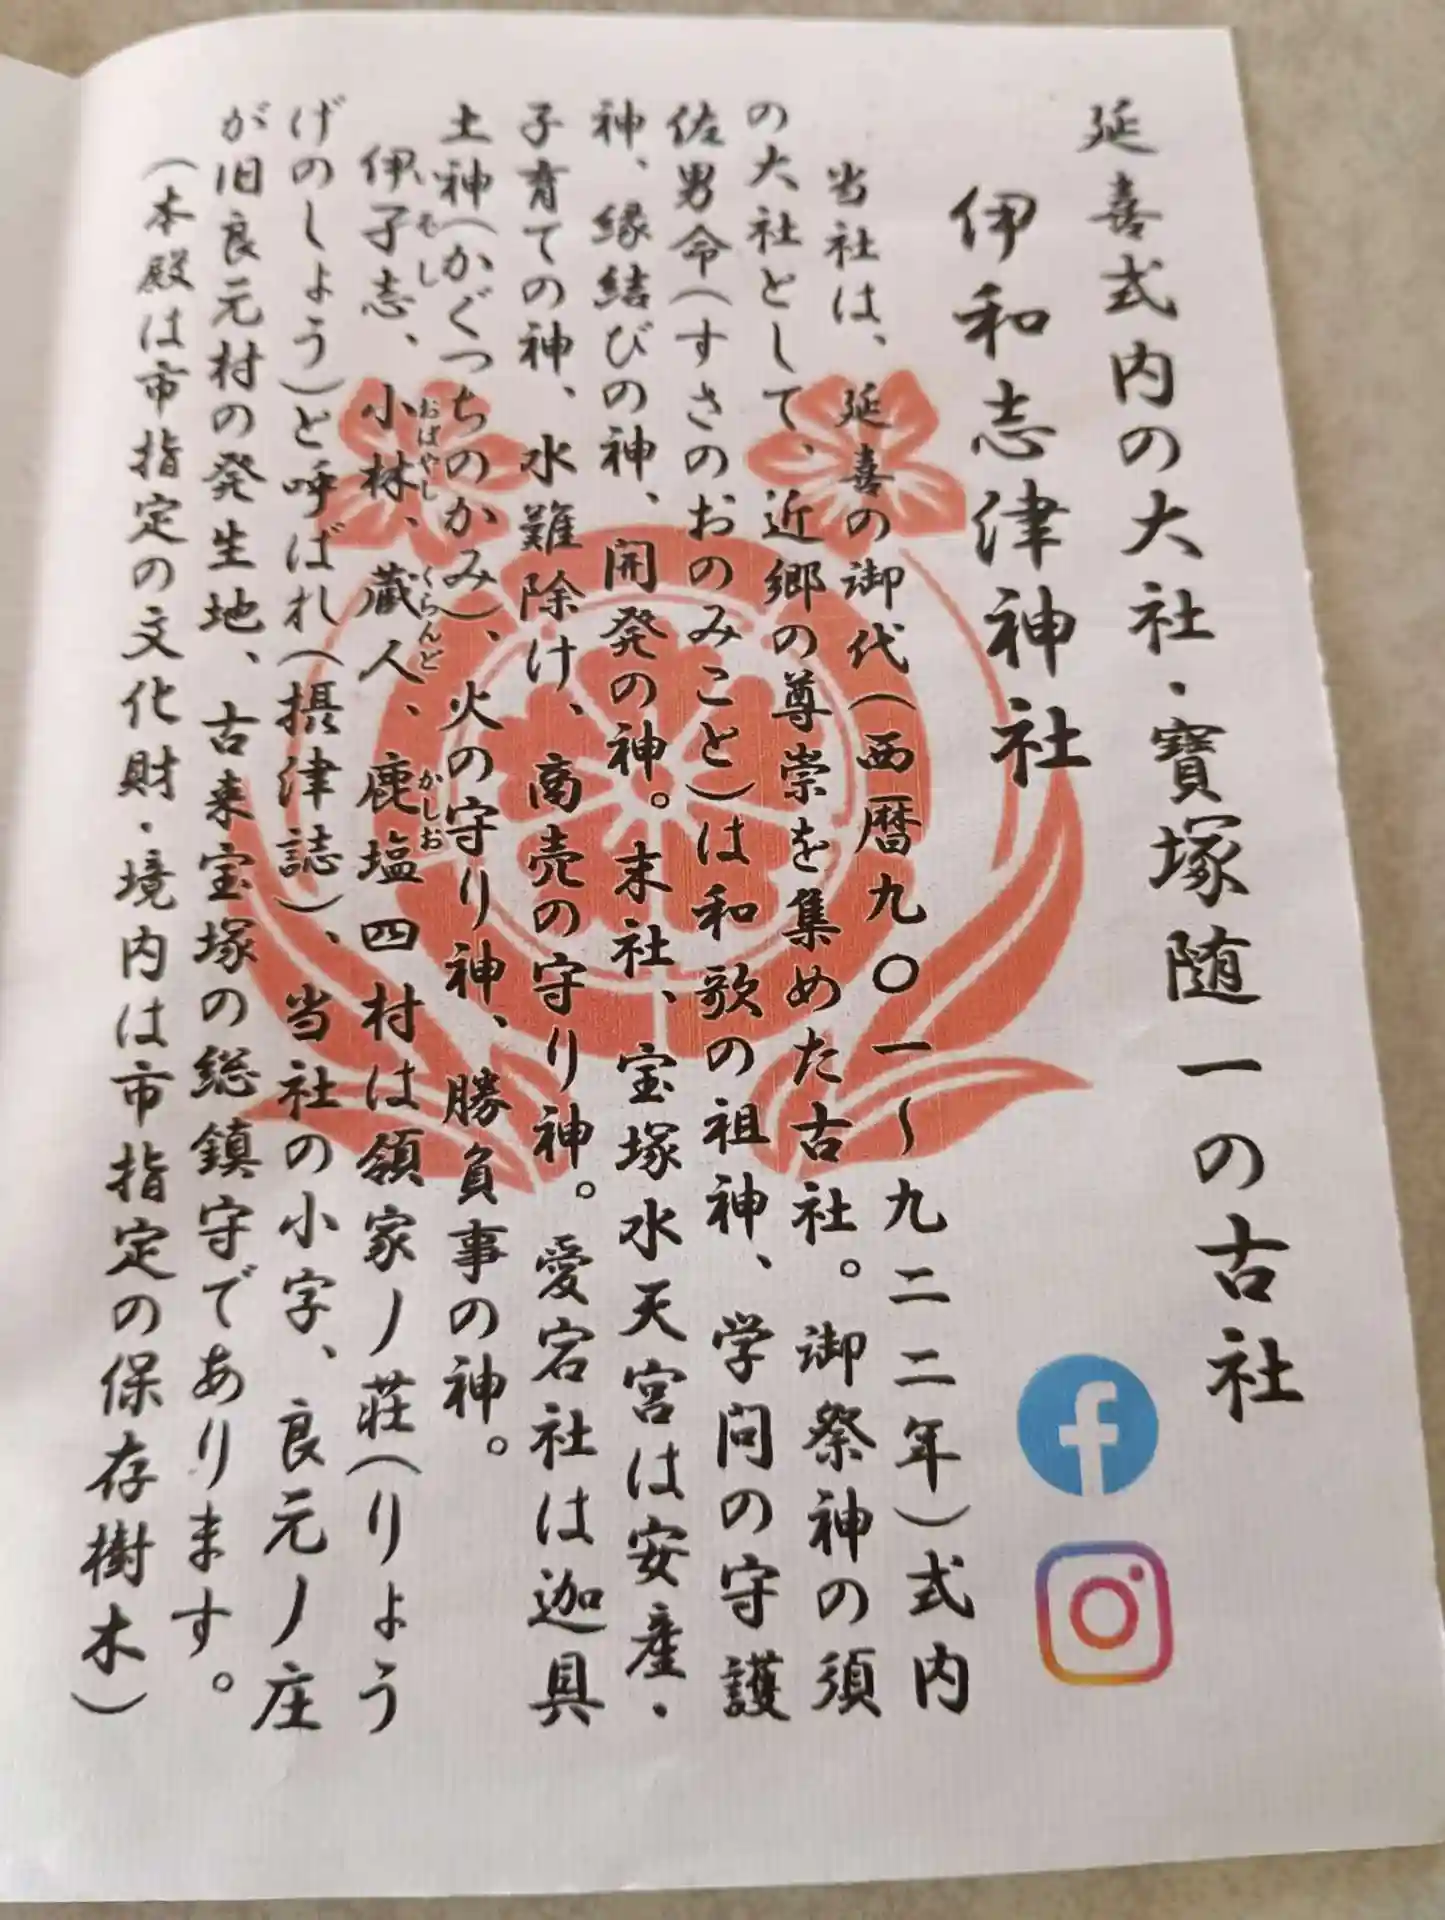 延喜式内の大社・寶塚随一の古社
伊和志津神社
当社は、延喜の御代(西暦九〇一〜九二二年)式内
の大社として、近郷の尊崇を集めた古社。御祭神の須
佐男命(すさのおのみこと)は和歌の祖神、学問の守護
神、縁結びの神、開発の神。末社、宝塚水天宮は安産・
子育ての神、水難除け、商売の守り神。愛宕社は迦具
土神(かぐつちのかみ)、火の守り神、勝負事の神。
伊子志、小林、蔵人、鹿塩四村は領家ノ荘(りょう
いそし おばやし くらんど かしお
げのしょう)と呼ばれ(摂津誌)、当社の小字、良元ノ庄
が旧良元村の発生地、古来宝塚の総鎮守であります。
(本殿は市指定の文化財・境内は市指定の保存樹木)